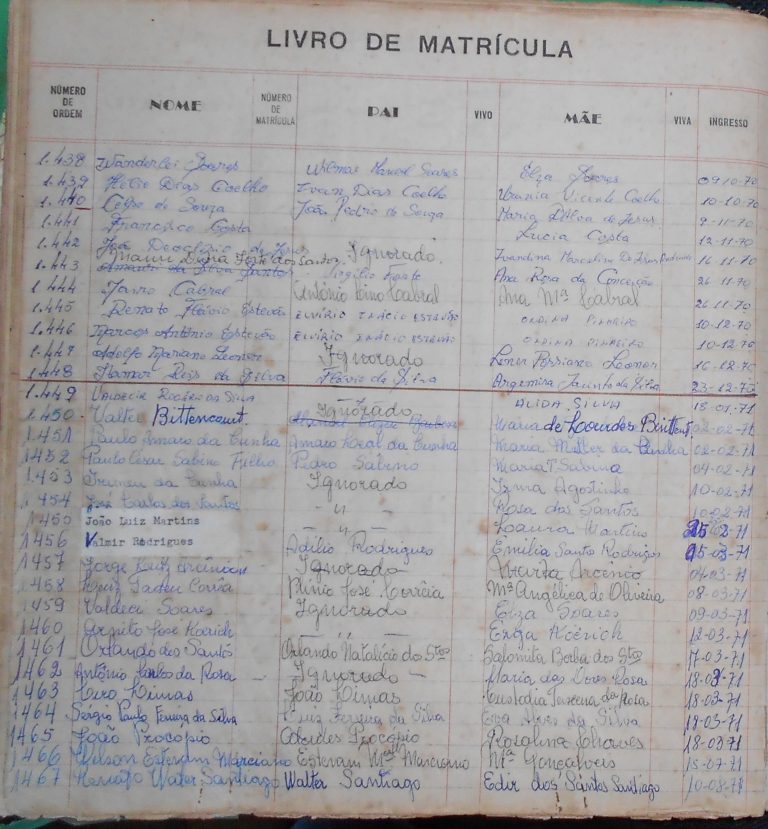 LIVRO DE MATRÍCULA
NÚMERO DE ORDEM NOME NÚMERO DE MATRÍCULA PAI VIVO MÃE VIVA INGRESSO
1.438 Wanderlei Soares Wilmar Manoel Soares Elza Soares 09-10-70
1.439 Hélio Dias Coelho Ivan Dias Coelho Vicente Coelho 10-10-70
1.440 Celso de Souza João Pedro de Souza Maria Dilva de Jesus 9-11-70
1.441 Francisco Costa Lucia Costa 12-11-70
1.442 João Deoclésio de Jesus Ignorado. Ivandina Marcelina de Jesus 16-11-70
1.443 Amauri da Silva Santos Virgílio Ana Rosa da Conceição 26-11-70
1.444 Jairo Cabral Antônio Lino Cabral Ana Mª Cabral 26-11-70
1.445 Renato Flávio Estevão ELVIRIO INÁCIO ESTEVÃO ONDINA PINHEIRO 10-12-70
1.446 Marcos Antônio Estevão ELVIRIO INÁCIO ESTEVÃO ONDINA PINHEIRO 10-12-70
1.447 Adolfo Mariano Leonor Ignorado Leonor 16-12-70
1.448 Reis da Silva Flávio da Silva Argemira Jacinto da Silva 23-12-70
1.449 VALDECIR DA SILVA Ignorado ALIDA SILVA 18-01-71
1.450 Valter Bittencourt. Maria de Lourdes Bittent. 02-02-71
1.451 Paulo Amaro da Cunha Amaro Leal da Cunha Maria da Cunha 02-02-71
1452 Paulo Cesar Sabino Filho Pedro Sabino Maria T. Sabina 04-02-71
1.453 da Cunha Ignorado Izma Agostinho 10-02-71
1454 José Carlos dos Santos - " - Rosa dos Santos 10-02-71
1455 João Luiz Martins - " - Laura Martins 25-02-71
1456 Valmir Rodrigues Adílio Rodrigues Emilia Santos Rodrigues 05-03-71
1457 Jorge Luiz Ignorado Maria 04-03-71
1458 Luiz Tadeu Corrêa Plínio José Corrêia Mª Angélica de Oliveira 08-03-71
1459 Valdeci Soares Ignorado Elza Soares 09-03-71
1460 José Koerich - " - Enga Koerich 12-03-71
1461 Orlando dos Santos Orlando Natalício dos Stos Salomita Borba dos Stos 17-03-71
1462 Antônio Carlos da Rosa - Ignorado - Maria das Dores Rosa 18-03-71
1463 Ciro Dimas João Dimas Custodia Teixeira da Rosa 18-03-71
1464 Sérgio Paulo Ferreira da Silva Luiz Ferreira da Silva Eva Alves da Silva 18-03-71
1465 João Procopio Procopio Rosalina Chaves 18-03-71
1466 Wilson Estevam Marciano Estevam Mel Marciano Mª Gonçalves 15-07-71
1467 Water Santiago Walter Santiago Edir dos Santos Santiago 10-08-71